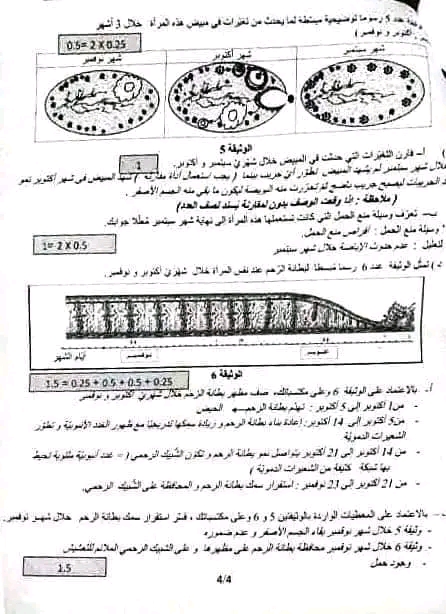 عدد 5 رسوما توضيحية مبسطة لما يحدث من تغيّرات في مبيض هذه المرأة خلال 3 أشهر
أكتوبر و نوفمبر )
0.5= 2 X 0.25
شهر سبتمبر
شهر أكتوبر
شهر نوفمبر
الوثيقة 5
أ- قارن التغيّرات التي حدثت في المبيض خلال شهريْ سبتمبر و أكتوبر.
1
خلال شهر سبتمبر لم يشهد المبيض تطوّر أيّ جريب بينما ( يجب استعمال أداة مقارنة ) شهد المبيض في شهر أكتوبر نمو
الجريبات ليصبح جريب ناضج ثم تحررت منه البويضة ليكون ما بقي منه الجسم الأصفر .
( ملاحظة : إذا وقعت الوصف بدون المقارنة يسند نصف العدد)
ب- تعرّف وسيلة منع الحمل التي كانت تستعملها هذه المرأة إلى نهاية شهر سبتمبر معلّلا جوابك.
وسيلة منع الحمل : أقراص منع الحمل.
1= 2 X 0.5
التعليل : عدم حدوث الإباضة خلال شهر سبتمبر
تمثّل الوثيقة عدد 6 رسما مبسطا لبطانة الرّحم عند نفس المرأة خلال شهريْ أكتوبر و نوفمبر.
أكتوبر
نوفمبر
أيّام الشهر
الوثيقة 6
1.5 = 0.25 + 0.5 + 0.5 + 0.25
أ- بالاعتماد على الوثيقة 6 وعلى مكتسباتك، صف مظهر بطانة الرّحم خلال شهريْ أكتوبر و نوفمبر
- من1 أكتوبر إلى 5 أكتوبر : تهدّم بطانة الرحم الحيض
- من5 أكتوبر إلى 14 أكتوبر: إعادة بناء بطانة الرحم و زيادة سمكها تدريجيّا مع ظهور الغدد الأنبوبيّة و تطوّر
الشعيرات الدمويّة
- من 14 أكتوبر إلى 21 أكتوبر يتواصل نمو بطانة الرحم و تكوّن الشّبيك الرحمي ( = غدد أنبوبيّة ملتوية تحيط
بها شبكة كثيفة من الشعيرات الدمويّة )
- من 21 أكتوبر إلى 23 نوفمبر : استقرار سمك بطانة الرحم و المحافظة على الشّبيك الرحمي.
بالاعتماد على المعطيات الواردة بالوثيقتين 5 و 6 وعلى مكتسباتك ، فسّر استقرار سمك بطانة الرحم خلال شهر نوفمبر.
- وثيقة 5 خلال شهر نوفمبر بقاء الجسم الأصفر و عدم ضموره
- وثيقة 6 خلال شهر نوفمبر محافظة بطانة الرحم على مظهرها و على الشبيك الرحمي الملائم للتعشيش
- وجود حمل
1.5
4/4